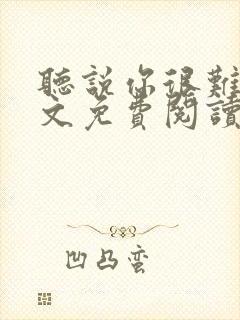 聽說你很難
文免費閱讀
凹凸蛮